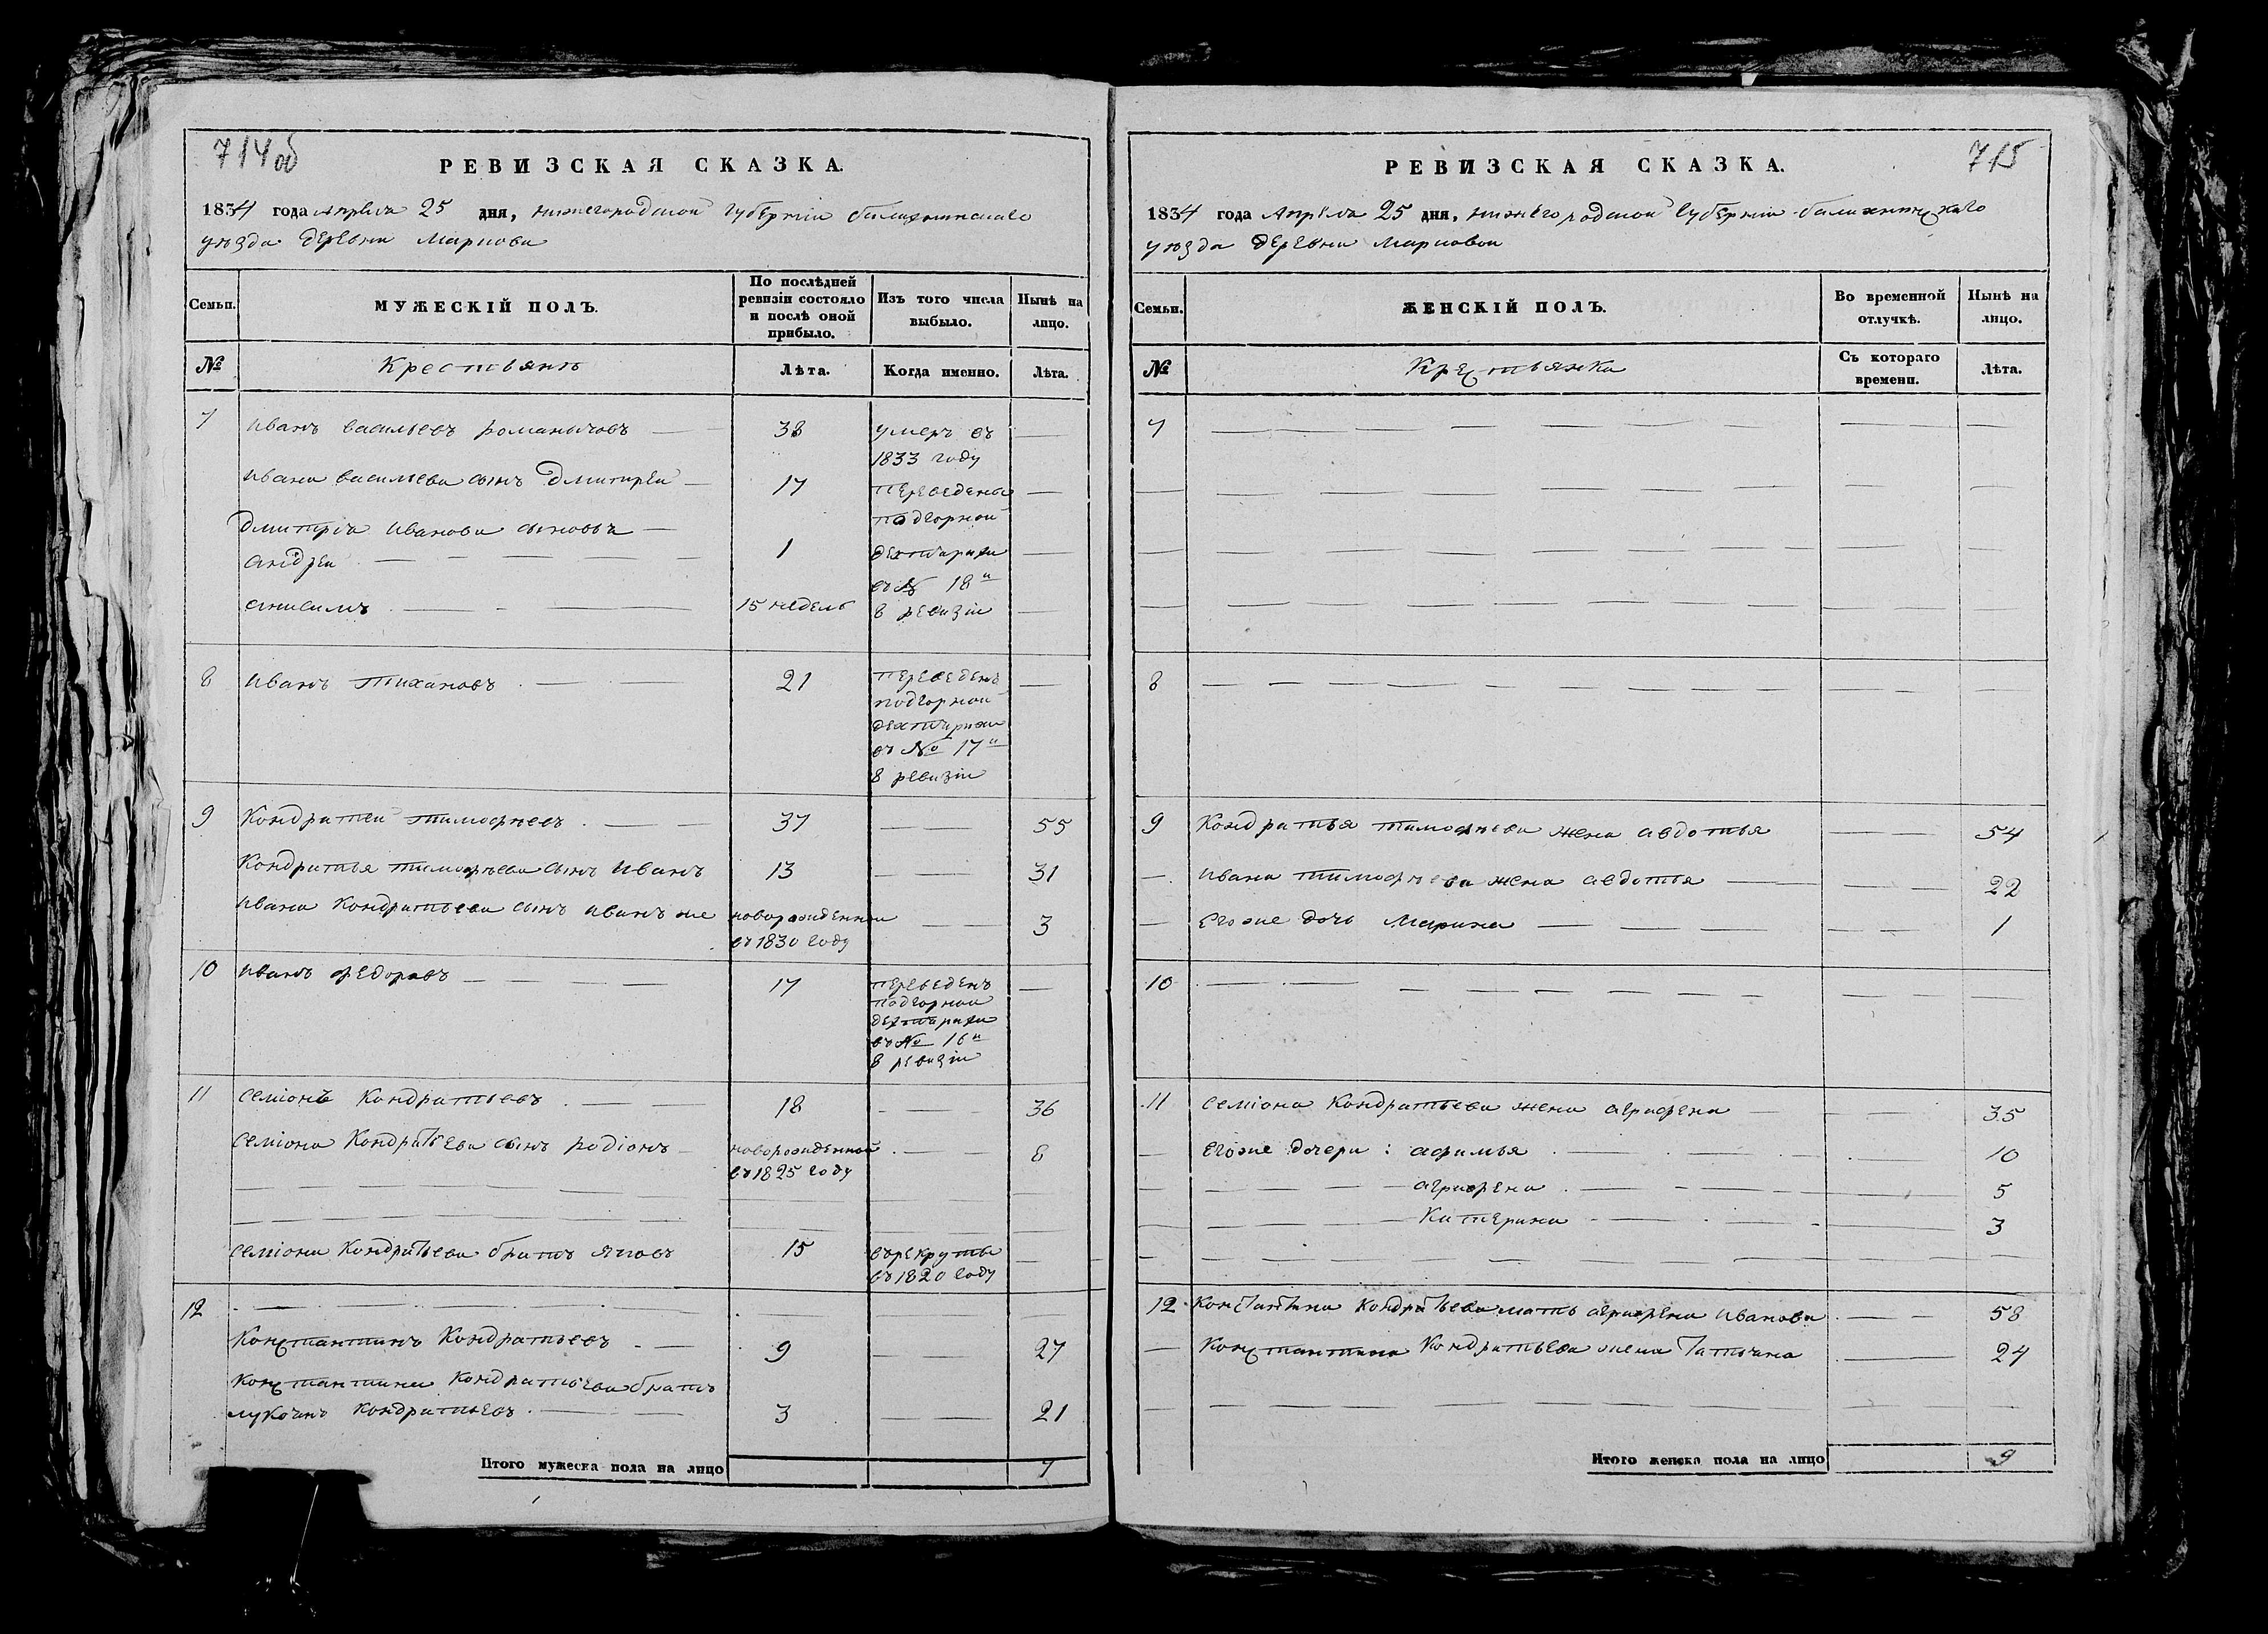 714об
РЕВИЗСКАЯ СКАЗКА.
1834 года Апреля 25 дня, нижегородской губернiи балахнинскаго
уѣзда деревни Маркова
Семьи.
МУЖЕСКIЙ ПОЛЪ.
По послѣдней ревизiи состояло и послѣ оной прибыло.
Изъ того числа выбыло.
Нынѣ на лицо.
№
Крестьянъ
Лѣта.
Когда именно.
Лѣта.
7 Иванъ васильевъ романычовъ — 38 умеръ въ —
1833 году
Ивана васильева сынъ Дмитреи — 17 переведены —
подгорной
Дмитрiя Иванова сыновья —
андреи — 1 дехтярихи —
въ № 18 и
анисимъ — 15 недель 8 ревизiи —
8 Иванъ тихановъ — 21 переведенъ —
подгорной
дехтярихи
въ № 17 и
8 ревизiи
9 Кондратеи тимофѣевъ — 37 — 55
Кондратья тимофѣева сынъ Иванъ 13 — 31
Ивана Кондратьева сынъ иванъ же новорожденнои — 3
въ 1830 году
10 Иванъ федоровъ — 17 переведенъ —
подгорнои
дехтярихи
въ № 16 и
8 ревизiи
11 семiонъ Кондратьевъ — 18 — 36
семiона Кондратьева сынъ родiонъ — новорожденной — 8
въ 1825 году
семiона Кондратьева братъ яковъ 15 въ рекруты —
въ 1820 году
12 —
Константинъ Кондратьевъ — 9 — 27
Константина Кондратьева братъ
лукоянъ Кондратьевъ — 3 — 21
Итого мужеска пола на лицо 7
715
РЕВИЗСКАЯ СКАЗКА.
1834 года Апреля 25 дня, нижегородской губернiи балахнинскаго
уѣзда деревни Марковой
Семьи.
ЖЕНСКIЙ ПОЛЪ.
Во временной отлучкѣ.
Нынѣ на лицо.
№
Крестьянка
Съ котораго времени.
Лѣта.
7 —
8 —
9 Кондратья тимофѣева жена авдотья — 54
— Ивана тимофѣева жена авдотья — 22
— Его же дочь Марина — 1
10 —
11 семiона Кондратьева жена аграфена — 35
— Его же дочери: афимья — 10
— аграфена — 5
— Катерина — 3
12 Константина Кондратьева мать аграфена Иванова — 58
— Константина Кондратьева жена Татьяна — 24
Итого женска пола на лицо 9